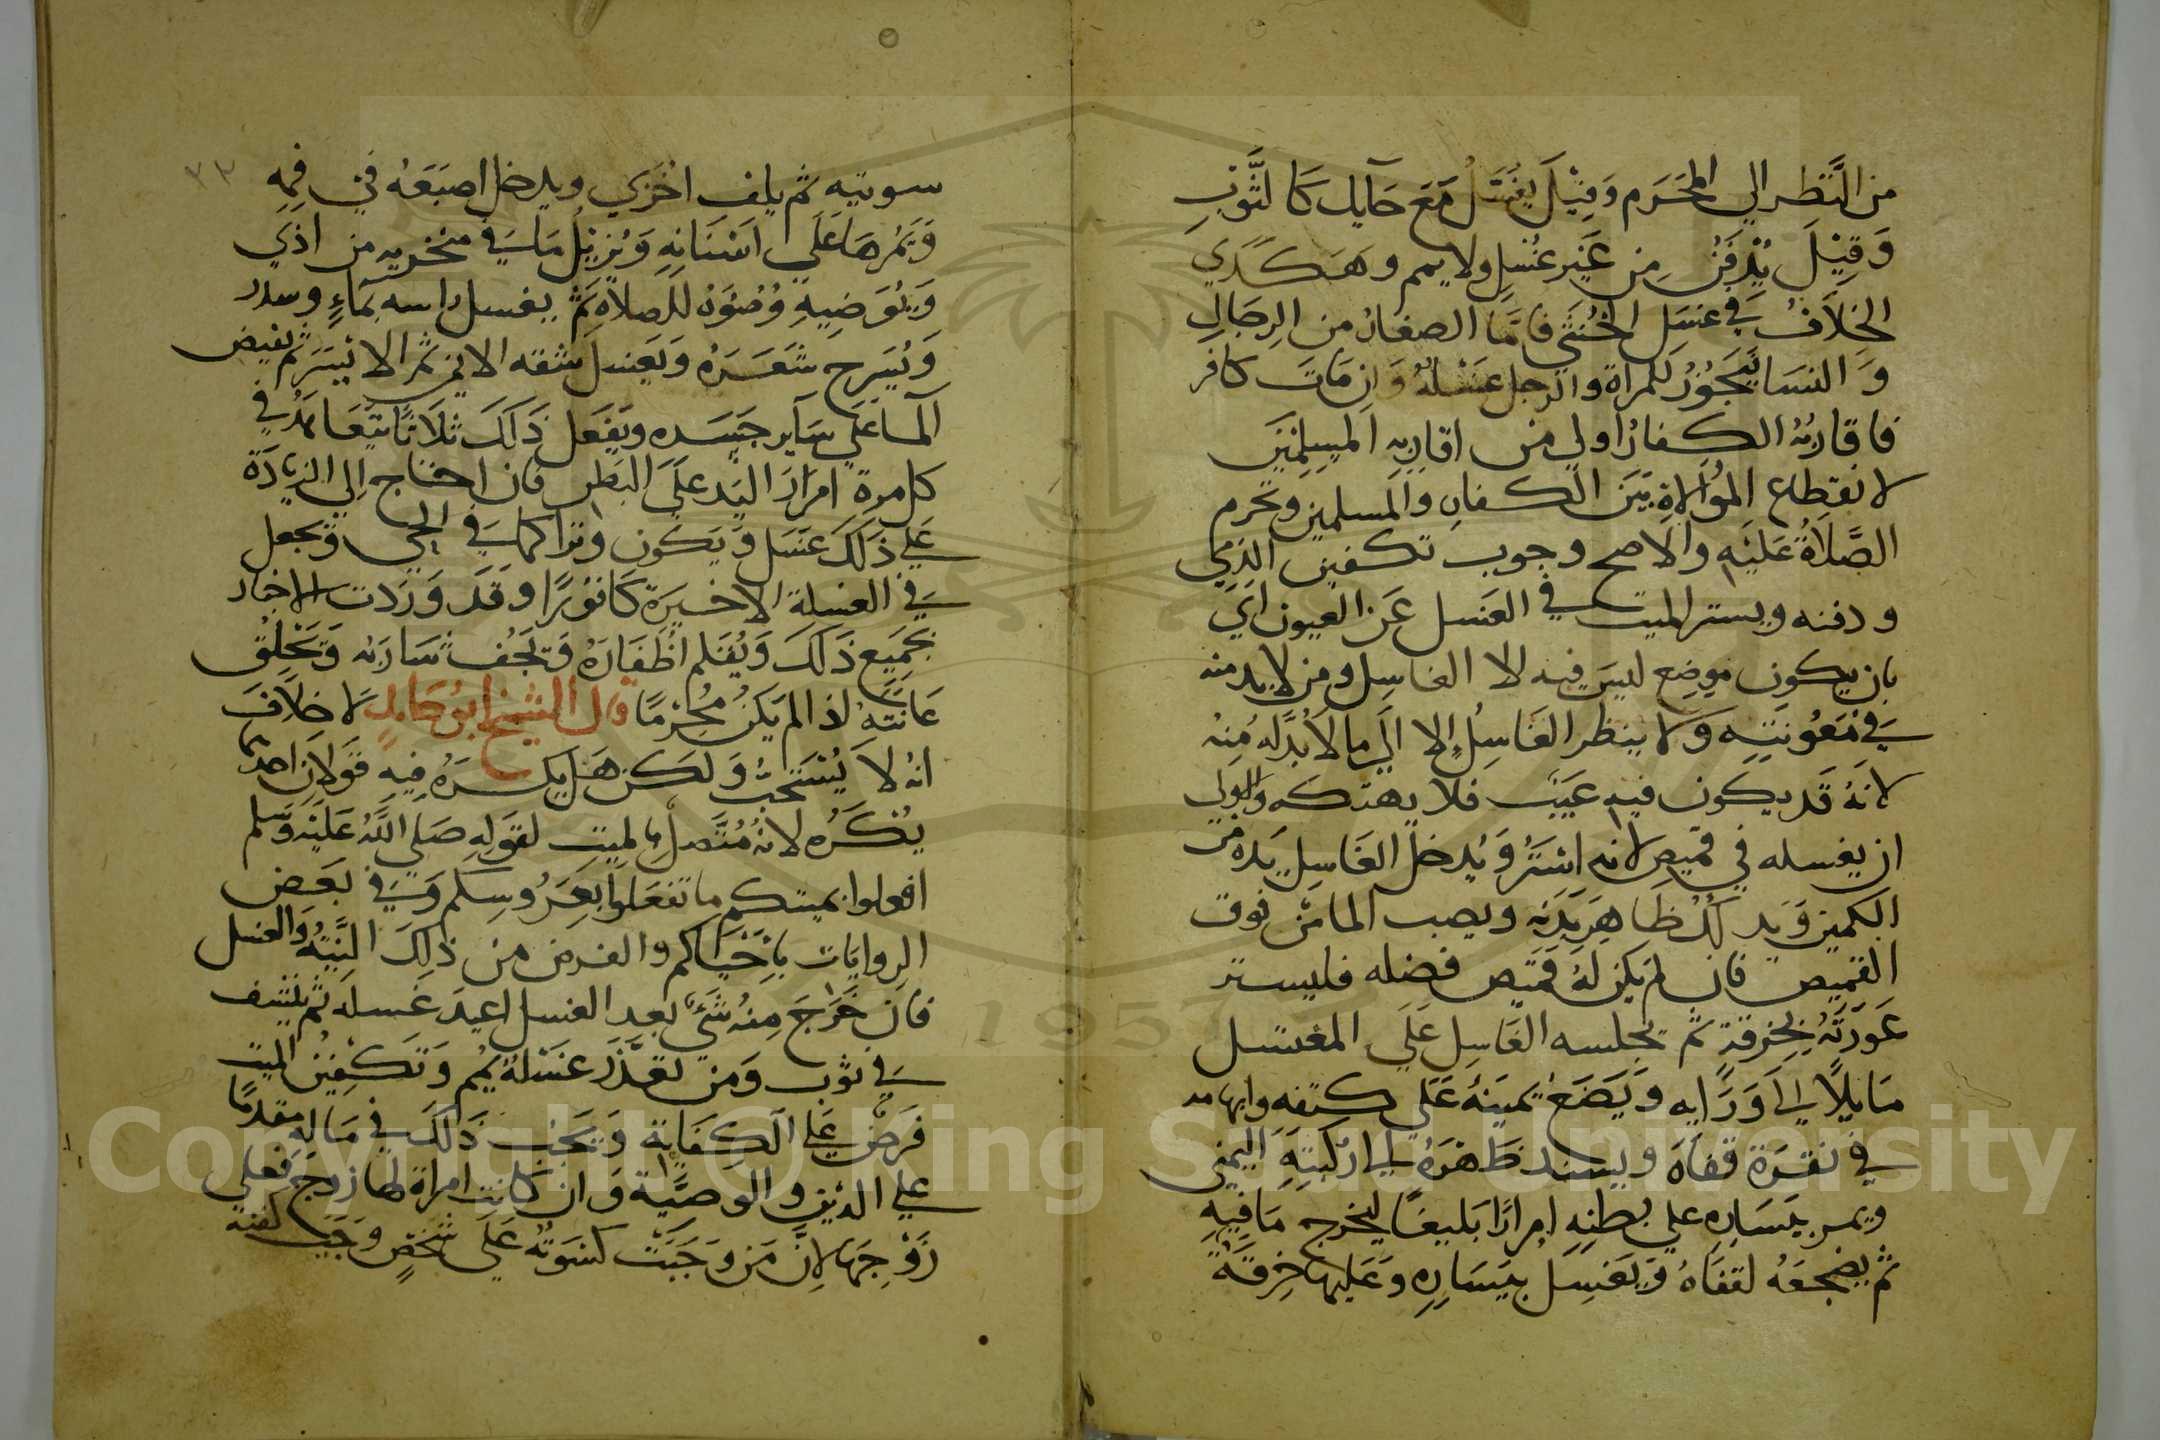 من النَّظر الي المحَرَم وَقيْلَ يغُسَل مَعَ حَايل كَالثَّوْبِ
وَقيْلَ يُدْفَنُ مِن غَير غُسْلٍ ولا يمم وهَكَدَي
الخِلَافُ في غسَل الخُنثي فامَّا الصغارُ من الرجَالِ
وَالنسَا يَجُوْزُ للمراة والرجل غسْلهُ وَان مَاتَ كافر
فاقاربُهُ الكفارُ اولي من اقاربه المسِلِمْيَن
لانقطاع المُوَالاةِ بَيَن الكفارِ والمسلمين وتحرم
الصَّلَاةُ عَليْه والاصح وجوب تكفين الذمي
ودفنه ويستر الميت في الغَسل عَن العيون اي
بان يكون موضِع ليسَ فيه الا الغاسِل ومن لابد منه
في مَعُونَتِهِ وَلا ينظر الغَاسِلُ الا الَي ما لَا بُدَّ لهُ مِنهُ
لانهُ قَد يكون فيه عَيَبُ فلا يهتكه والاولي
ان يغسله في قميصٍ لانه استَرُ وَيُدخل الغَاسِل يَدهُ من
الكمين وَيدلُكُ ظاهِر بَدَنه ويصب الما مَن فوق
القميصِ فان لم يَكن لَهُ قمَيص فضله فليستر
عَورَتَهُ بخِرقةٍ ثم يجلسه الغَاسِل عَلَي المغتسل
مَايلًا الي وَرَايه وَيَضَعُ يَميَنهُ عَلي كتفه وابهامه
في نقرَة قفَاهَ ويسند ظَهْرَهُ الي رُكبَتِهِ اليمني
ويمر بيَسَارِهِ علي بطنِهِ امرارًا بَليغًا ليخرج مَا فيِهِ
ثم يضجعَهُ لقفَاهُ وَيَغسِل بيَسَارِهِ وَعَليها خِرقَةٌ
٣٣
سوتيه ثم يلف اخُرَي ويدخل اصبَعَهُ في فِمهِ
وَيَمُرهَا عَلَي اسْنَانِهِ وَيُزيْلُ مَا في منخريه من اذَي
وَيُوَضِيهِ وُضُوَهُ للصلاة ثَم يغسل راسه بمَاءٍ وسدر
وَيُسَرح شَعَرَهُ وَيَغسل شقه الايمن ثم الايسَرَ ثم يفيض
المَا عَلي سَاير جَسَده ويَفعَل ذَلكَ ثلَاثًا يَتَعَاهَدُ في
كل مرة امرَارَ اليَد عَلَي البَطن فان احتاج الي الزيادَة
عَلي ذَلكَ غَسَل وَيكون وترا كما في الحي وَيجعل
في الغسلة الاخيرَة كَافورًا وقَد وَرَدت الاخبار
بجمَيع ذَلكَ وَيُقلم اظفَارَهُ وَيَحُف شَاربَه وَيَحْلِقُ
عَانَتَهُ اذا لم يَكنُ مُحِرمًا قال الشيخ ابو حَامِدٍ لا خلَافَ
انهُ لَا يُسْتَحبُّ وَلكن هَل يكرَهُ فِيهِ قوَلان احدهما
يُكرَه لانهُ مُتَّصلٌ بالميت لقوَلهِ صَلي اللَّهُ عَليْه وَسَلم
افعلوا بميتكم ما تفعَلوا بعَرُوسِكُم وَفي بعَض
الروايَات باحَيَاكم والفرض من ذلِكَ النيَّةُ وَالغسل
فان خَرَجَ مِنهُ شَيٌ بعد الغسل اعيدَ غَسله ثم ينشف
في ثوب وَمَن تعَذرَ غسَلهُ يمُم وَتكَفِينُ الميت
فرَض علي الكِفَاية وَيَجَبُ ذَلكَ في مَالهِ مقدمًا
علي الدَين والوصيَّة وَان كانت امراة لها زوج فعلي
زَوْجِهَا لِانَّ مَن وَجَبَت كسوَتهُ عَلَي شخصٍ وَجَبَ كفنه
Copyright © King Saud University
1957